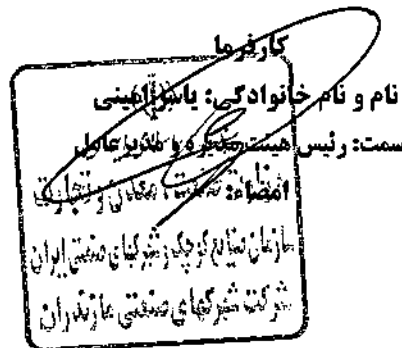 کارفرما
نام و نام خانوادگی: یاسر امینی
سمت: رئیس هیئت مدیره و مدیرعامل
امضاء:
صنعت، معدن و تجارت
سازمان صنایع کوچک و شهرکهای صنعتی ایران
شرکت شهرکهای صنعتی مازندران